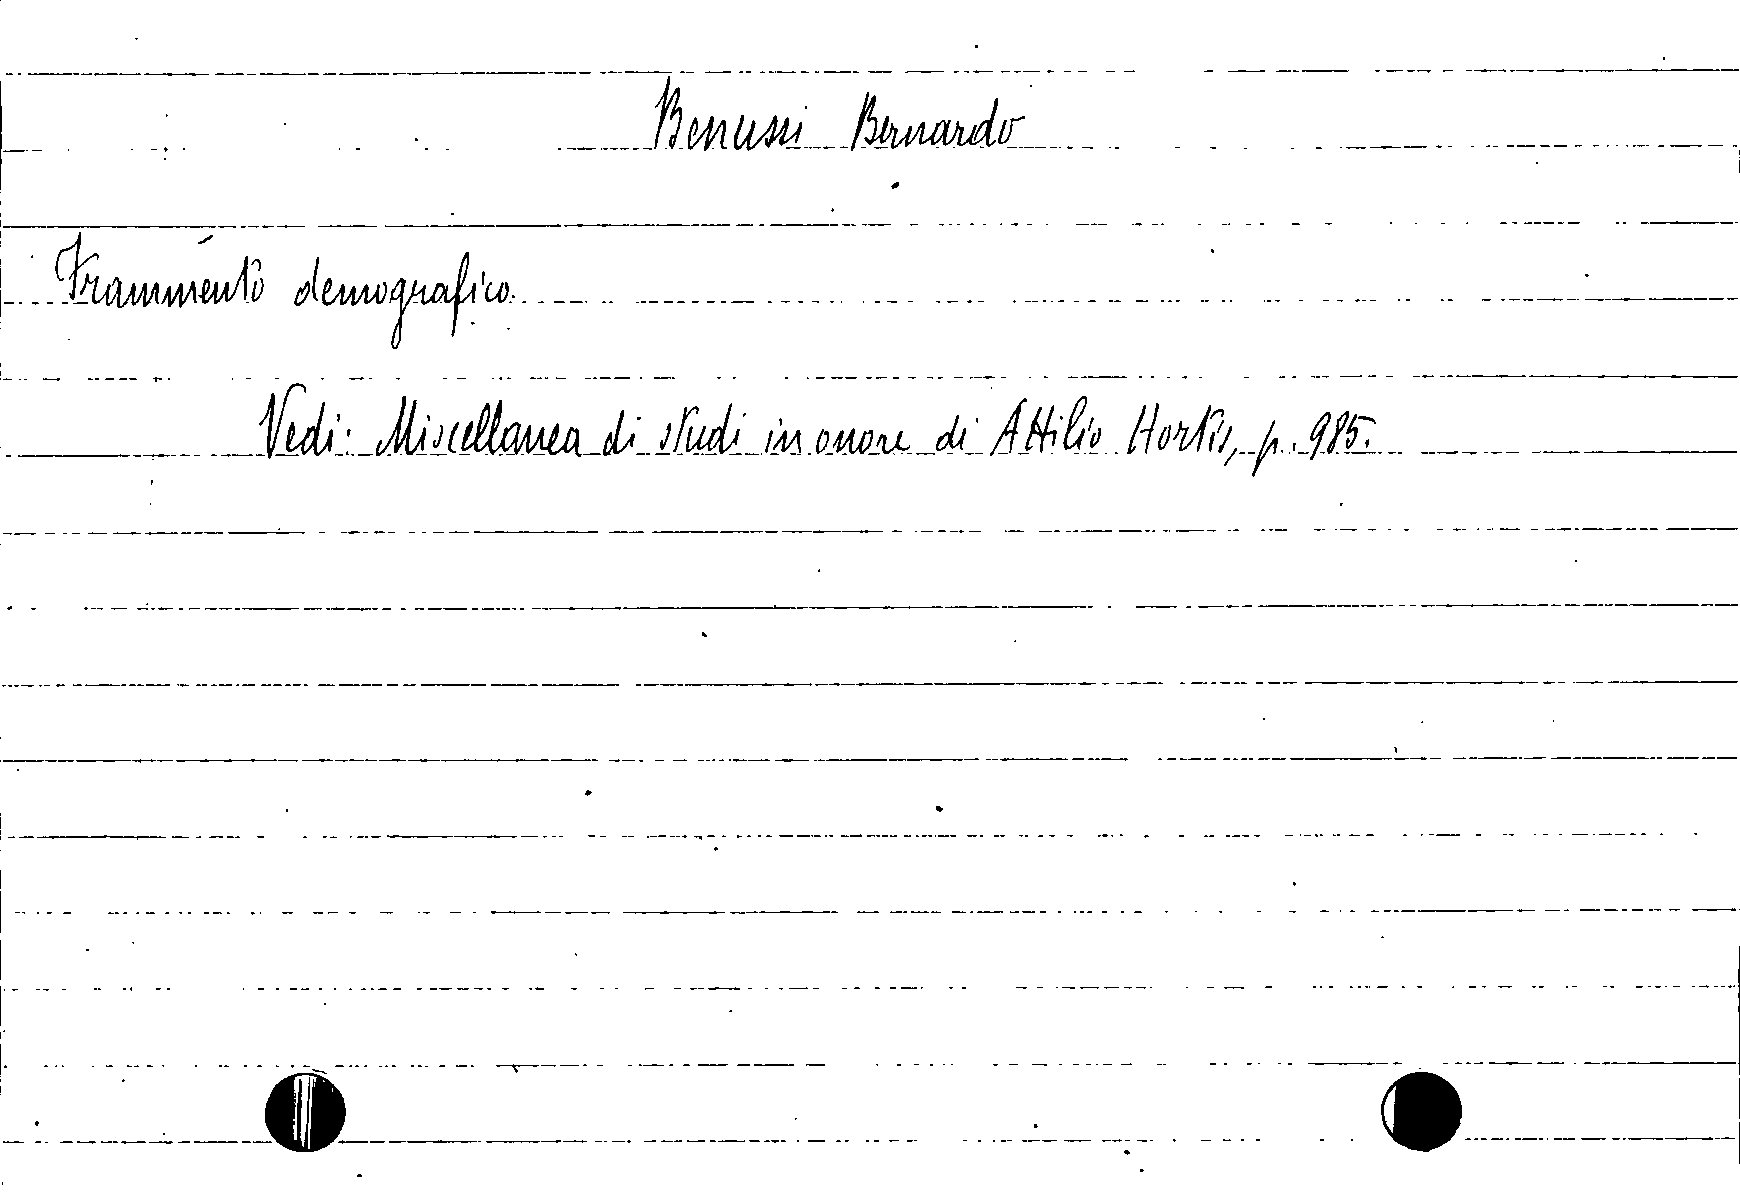 Benussi Bernardo
Frammento demografico.
Vedi: Miscellanea di studi in onore di Attilio Hortis, p. 985.